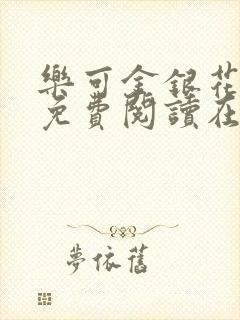 樂可金銀花
免費閱讀在
夢依舊